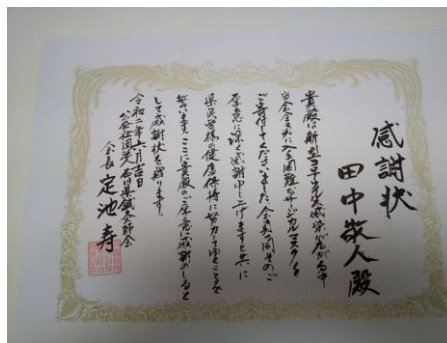 感謝状
田中敬人殿
貴殿は新型コロナウイルス感染
当会会員に入手困難なサージカルマスクを
ご寄付してくださいました 会員一同そのご
厚意に深く感謝申し上げますと共に
県民皆様の健康保持に努力してゆくことを
誓います ここに貴殿のご厚意に感謝のしるしと
して感謝状を贈ります
令和二年六月吉日
公益社団法人石川県鍼灸師会
会長 定池寿